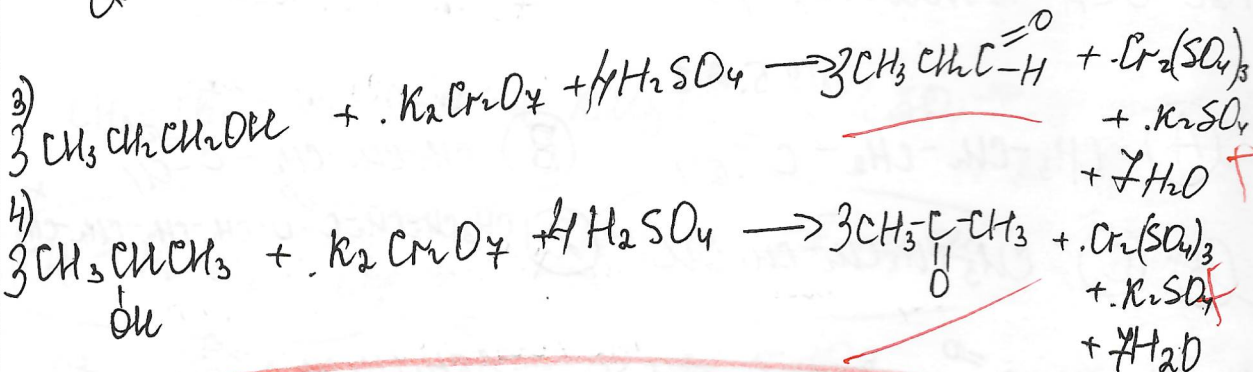 3)
3CH3CH2CH2OH + K2Cr2O7 + 4H2SO4 → 3CH3CH2C(=O)-H + Cr2(SO4)3
+ K2SO4
+ 7H2O
4)
3CH3CHCH3 + K2Cr2O7 + 4H2SO4 → 3CH3-C-CH3 + Cr2(SO4)3
OH
O
+ K2SO4
+ 7H2O